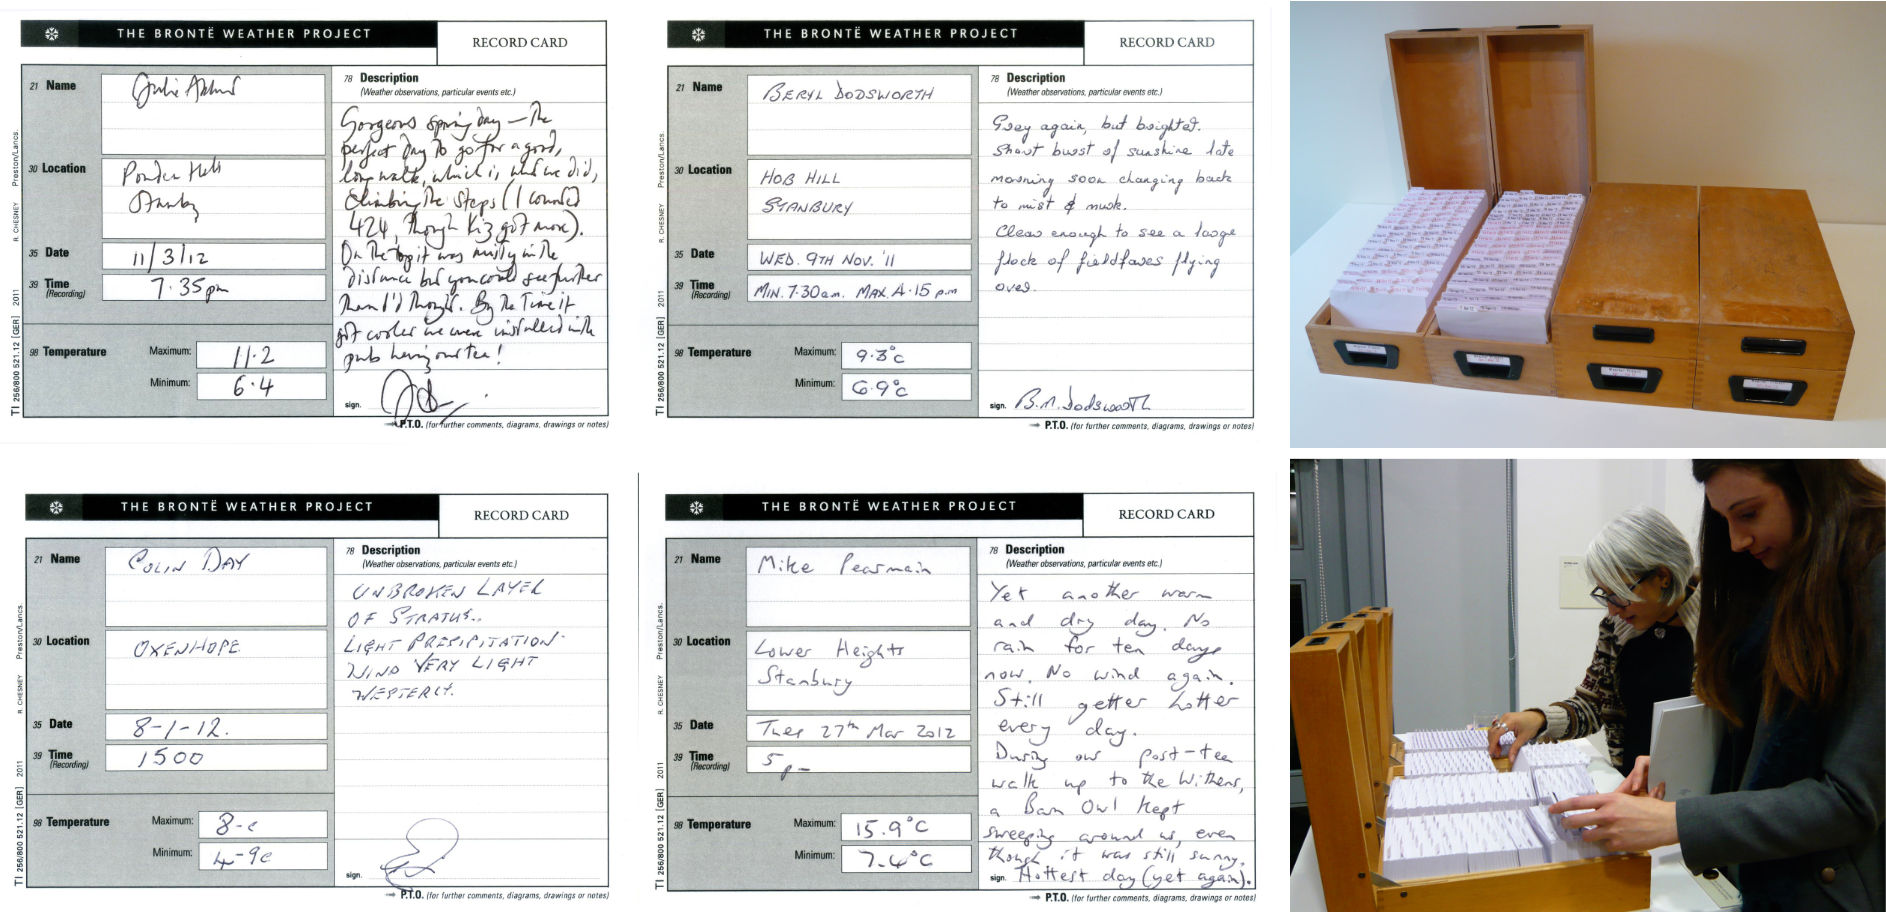 THE BRONTË WEATHER PROJECT
RECORD CARD
21 Name
Julie
30 Location
Ponden Hall
Stanbury
35 Date
11/3/12
39 Time
(Recording)
7.35pm
98 Temperature
Maximum:
11.2
Minimum:
6.4
78 Description
(Weather observations, particular events etc.)
Gorgeous spring day – the
perfect day to go for a good,
long walk, which is what we did,
climbing the steps (I counted
424, though Kiz got more).
On the top it was misty in the
distance but you could see further
than I'd thought. By the time it
got cooler we were installed in the
pub having our tea!
sign.
P.T.O. (for further comments, diagrams, drawings or notes)
TI 256/800 521.12 [GER] 2011 R. CHESNEY Preston/Lancs.
THE BRONTË WEATHER PROJECT
RECORD CARD
21 Name
BERYL DODSWORTH
30 Location
HOB HILL
STANBURY
35 Date
WED. 9TH NOV. '11
39 Time
(Recording)
MIN. 7.30am. MAX. 4.15 pm
98 Temperature
Maximum:
9.3°c
Minimum:
6.9°c
78 Description
(Weather observations, particular events etc.)
Grey again, but brighter.
Short burst of sunshine late
morning soon changing back
to mist & murk.
Clear enough to see a large
flock of fieldfares flying
over.
sign. B.M. Dodsworth
P.T.O. (for further comments, diagrams, drawings or notes)
TI 256/800 521.12 [GER] 2011 R. CHESNEY Preston/Lancs.
THE BRONTË WEATHER PROJECT
RECORD CARD
21 Name
COLIN DAY
30 Location
OXENHOPE
35 Date
8-1-12.
39 Time
(Recording)
1500
98 Temperature
Maximum:
8-c
Minimum:
4-9c
78 Description
(Weather observations, particular events etc.)
UNBROKEN LAYER
OF STRATUS.
LIGHT PRECIPITATION.
WIND VERY LIGHT
WESTERLY.
sign.
P.T.O. (for further comments, diagrams, drawings or notes)
TI 256/800 521.12 [GER] 2011 R. CHESNEY Preston/Lancs.
THE BRONTË WEATHER PROJECT
RECORD CARD
21 Name
Mike Pearmain
30 Location
Lower Heights
Stanbury
35 Date
Tues 27th Mar 2012
39 Time
(Recording)
5pm
98 Temperature
Maximum:
15.9°C
Minimum:
7.4°C
78 Description
(Weather observations, particular events etc.)
Yet another warm
and dry day. No
rain for ten days
now. No wind again.
Still getter hotter
every day.
During our post-tea
walk up to the Withens,
a Barn Owl kept
sweeping around us, even
though it was still sunny.
sign. Hottest day (yet again).
P.T.O. (for further comments, diagrams, drawings or notes)
TI 256/800 521.12 [GER] 2011 R. CHESNEY Preston/Lancs.